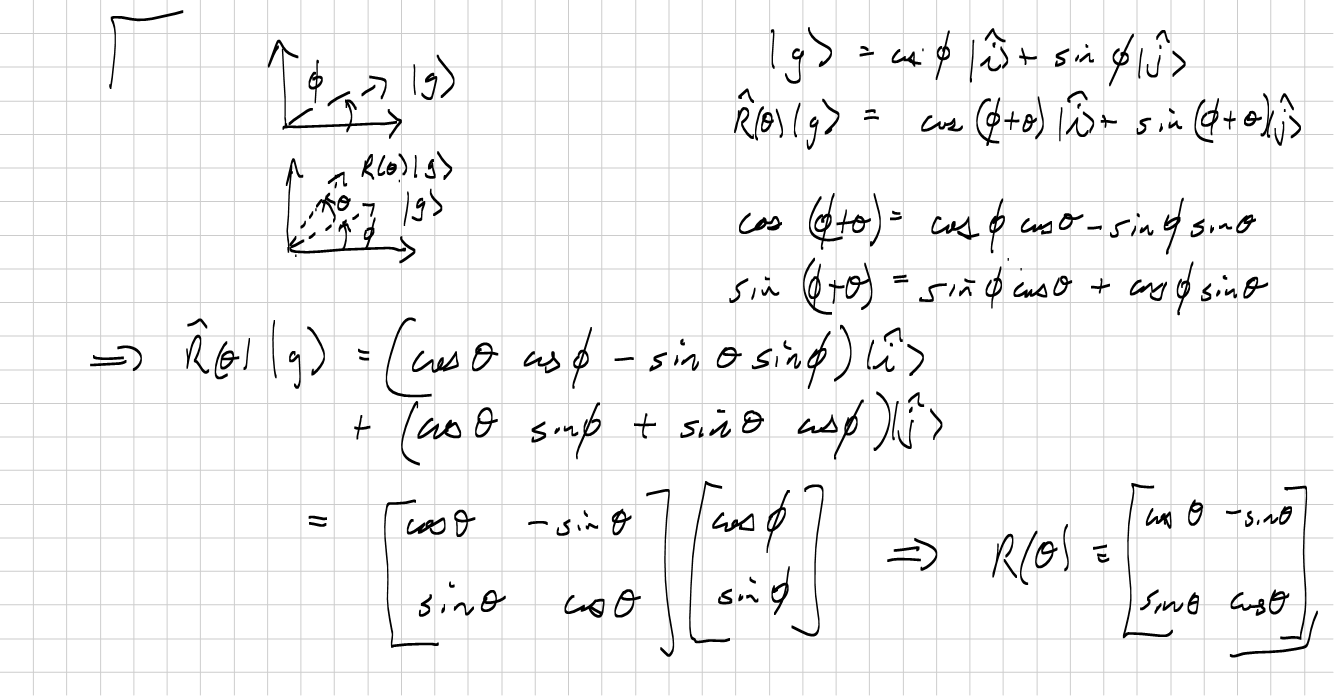 ϕ |g⟩
R(θ)|g⟩
θ |g⟩
ϕ
|g⟩ = cos ϕ |î⟩ + sin ϕ |ĵ⟩
R̂(θ)|g⟩ = cos (ϕ+θ) |î⟩ + sin (ϕ+θ)|ĵ⟩
cos (ϕ+θ) = cos ϕ cos θ - sin ϕ sin θ
sin (ϕ+θ) = sin ϕ cos θ + cos ϕ sin θ
⇒ R̂(θ) |g⟩ = (cos θ cos ϕ - sin θ sin ϕ) |î⟩
+ (cos θ sin ϕ + sin θ cos ϕ)|ĵ⟩
= [cos θ -sin θ] [cos ϕ] ⇒ R(θ) = [cos θ -sin θ]
[sin θ cos θ] [sin ϕ] [sin θ cos θ]